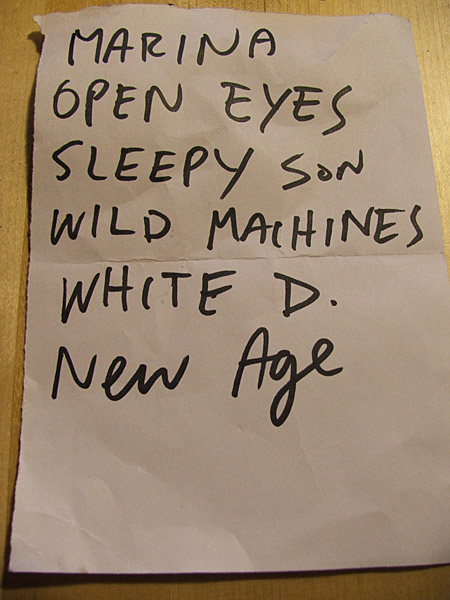 MARINA
OPEN EYES
SLEEPY SON
WILD MACHINES
WHITE D.
New Age